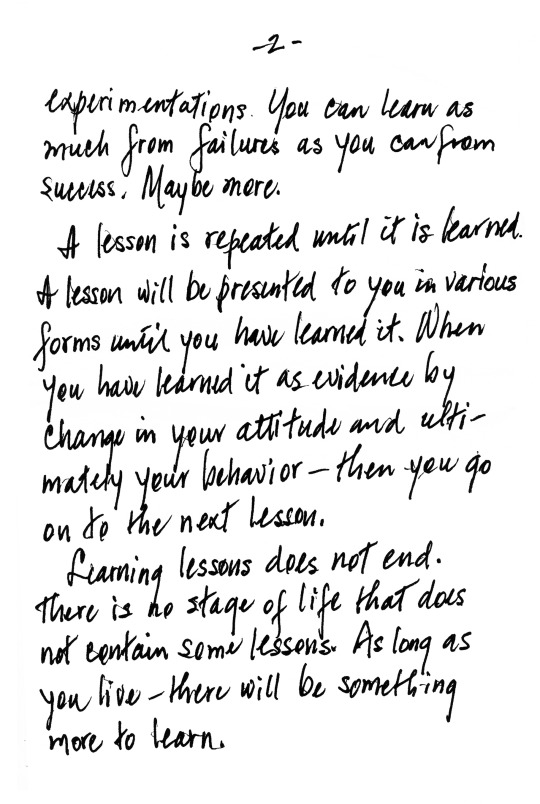 -2-
experimentations. You can learn as
much from failures as you can from
success. Maybe more.
A lesson is repeated until it is learned.
A lesson will be presented to you in various
forms until you have learned it. When
you have learned it as evidence by
change in your attitude and ulti-
mately your behavior - then you go
on to the next lesson.
Learning lessons does not end.
There is no stage of life that does
not contain some lessons. As long as
you live - there will be something
more to learn.